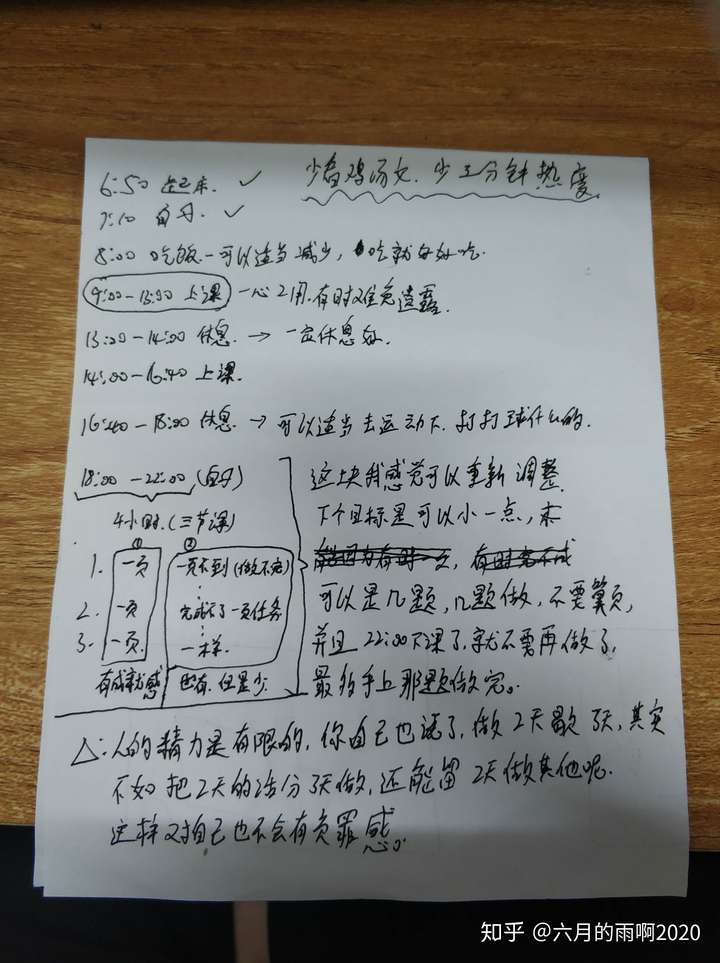 少看鸡汤文.少三分钟热度
6:50 起床. ✓
7:10 自习. ✓
8:00 吃饭.—可以适当减少,吃就好好吃.
9:00-13:00 上课 一心2用.有时难免
13:00-14:00 休息. → 一定休息好.
14:00-16:40 上课.
16:40-18:00 休息 → 可以适当去运动下.打打球什么的.
18:00-22:00 (自习)
4小时.(三节课)
① ②
1. 一页 一页不到(做不完)
2. 一页 完成不了一页任务
3. 一页. 一样.
有成就感 也有.但是少.
这块我感觉可以重新调整.
下个目标是可以小一点,
可以是几题,几题做,不要算页,
并且22:00下课了,就不要再做了,
最多手上那题做完。
△:人的精力是有限的,你自己也试了,做2天歇3天,其实
不如把2天的活分3天做,还能留2天做其他呢.
这样对自己也不会有负罪感。
知乎 @六月的雨啊2020